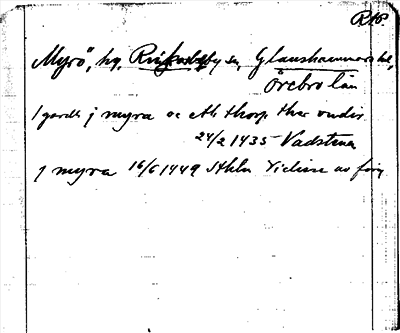 RAp
Myrö, hg, Rinkaby sn, Glanshammars hd,
Örebro län
1 gardh j myra oc ett thorp ther vndir
24/2 1435 Vadstena
j myra 16/6 1449 Sthlm Vidisse av förg